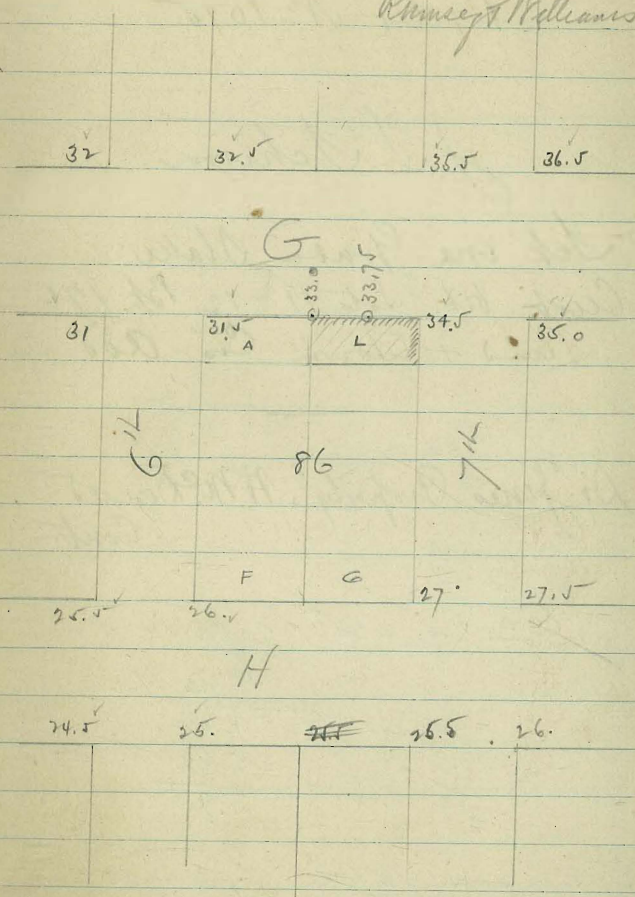 Rumsey & Williams
32 32.5 35.5 36.5
G
33.0 33.75
31 31.5 34.5 35.0
A L
6th 86 7th
F G
25.5 26. 27. 27.5
H
24.5 25. 25.5 25.5 26.